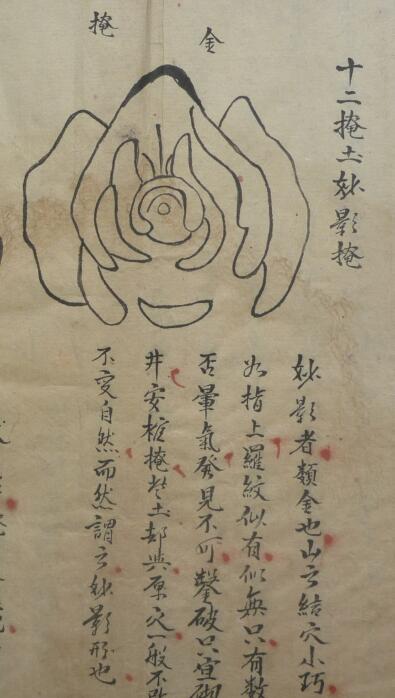 十二掩土妙影掩
金
掩
妙影者類金也山之結穴小巧
如指上羅紋似有似無只有数
否暈氣發見不可鑿破只宜砌
井安棺掩土却與原穴一般不
不变自然而然謂之妙影形也